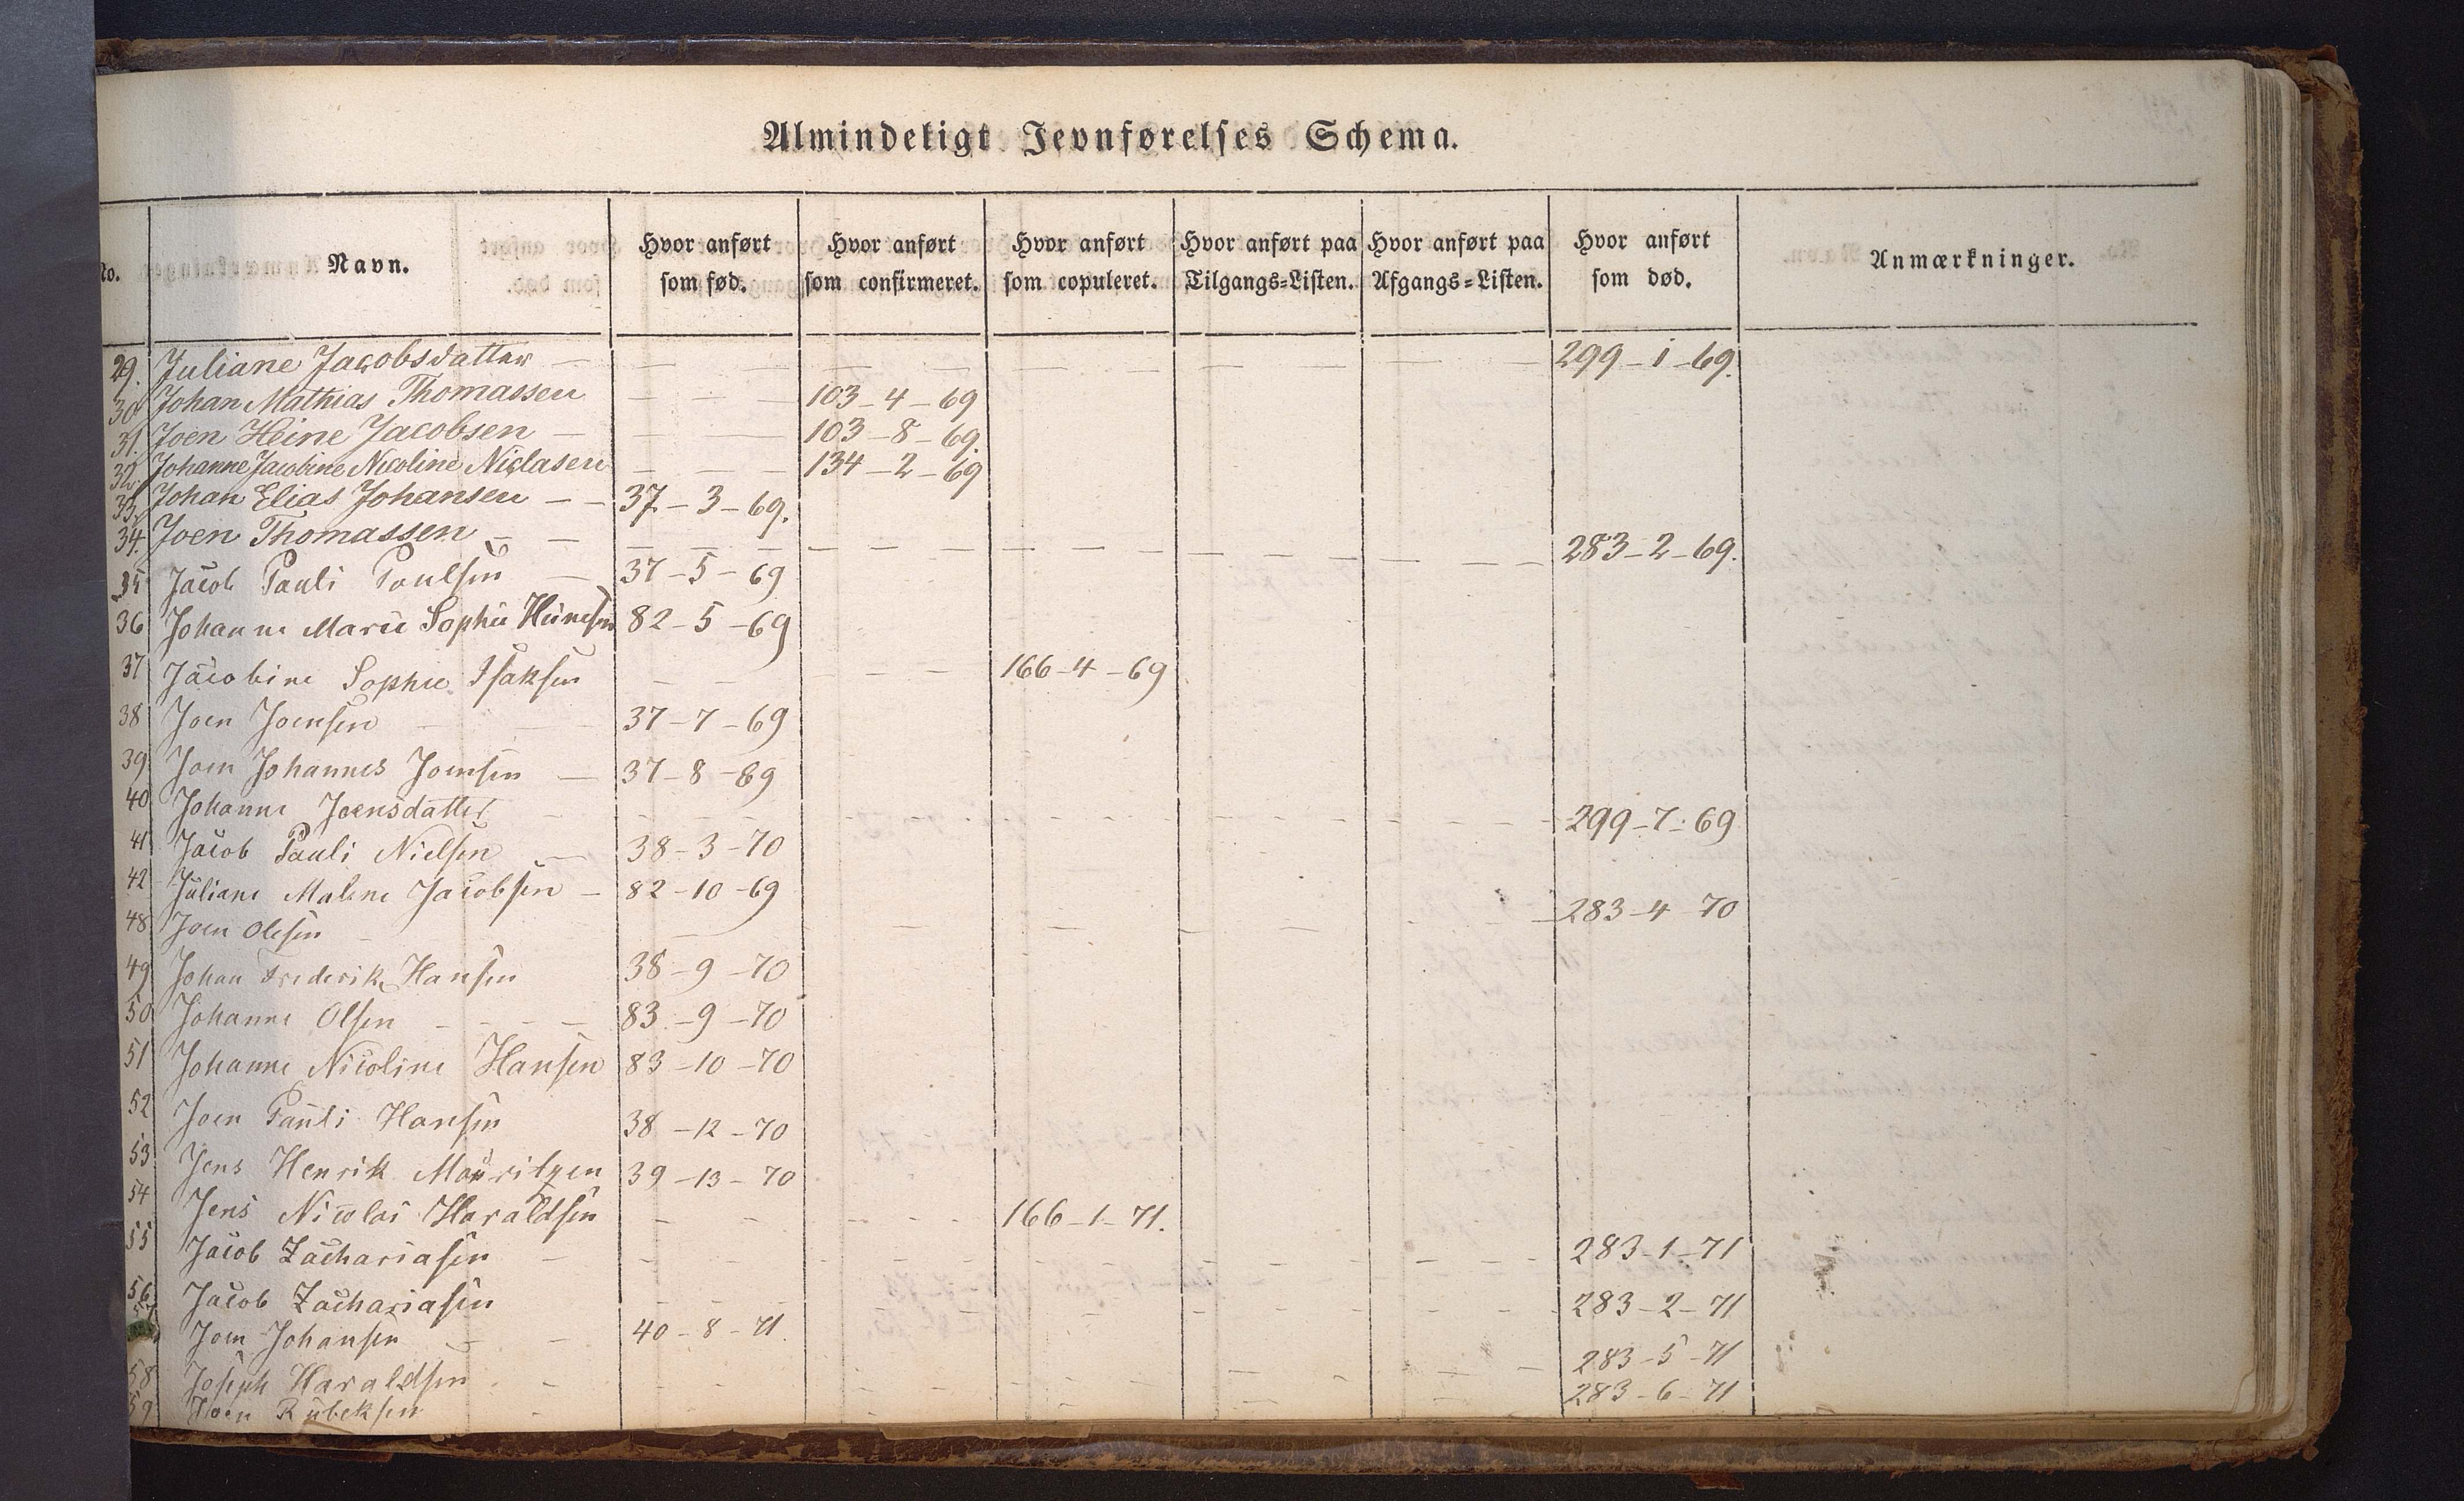 Almindeligt Jevnførelses Schema.
No. Navn. Hvor anført som fød. Hvor anført som confirmeret. Hvor anført som copuleret. Hvor anført paa Tilgangs=Listen. Hvor anført paa Afgangs=Listen. Hvor anført som død. Anmærkninger.
29. Juliane Jacobsdatter — 299-1-69.
30 Johan Mathias Thomassen 103-4-69
31. Joen Heine Jacobsen — 103-8-69.
32. Johanne Jacobine Nicoline Niclasen 134-2-69
33. Johan Elias Johansen — 37-3-69.
34. Joen Thomassen — 283-2-69.
35 Jacob Pauli Poulsen — 37-5-69
36 Johanne Marie Sophie Heinesen 82-5-69
37 Jacobine Sophie Isaksen 166-4-69
38 Joen Joensen 37-7-69
39 Joen Johannes Joensen — 37-8-69
40 Johanne Joensdatter 299-7-69
41 Jacob Pauli Nielsen — 38-3-70
42 Juliane Malene Jacobsen — 82-10-69
48 Joen Olesen 283-4-70
49 Johan Frederik Hansen 38-9-70
50 Johanne Olsen — 83-9-70
51 Johanne Nicoline Hansen 83-10-70
52 Joen Pauli Hansen 38-12-70
53 Jens Henrik Mouritzen 39-13-70
54 Jens Nicolai Haraldsen 166-1-71.
55 Jacob Zachariasen 283-1-71
56 Jacob Zachariasen 283-2-71
57 Joen Johansen 40-8-71.
58 Joseph Haraldsen 283-5-71
59 Joen Rubeksen 283-6-71